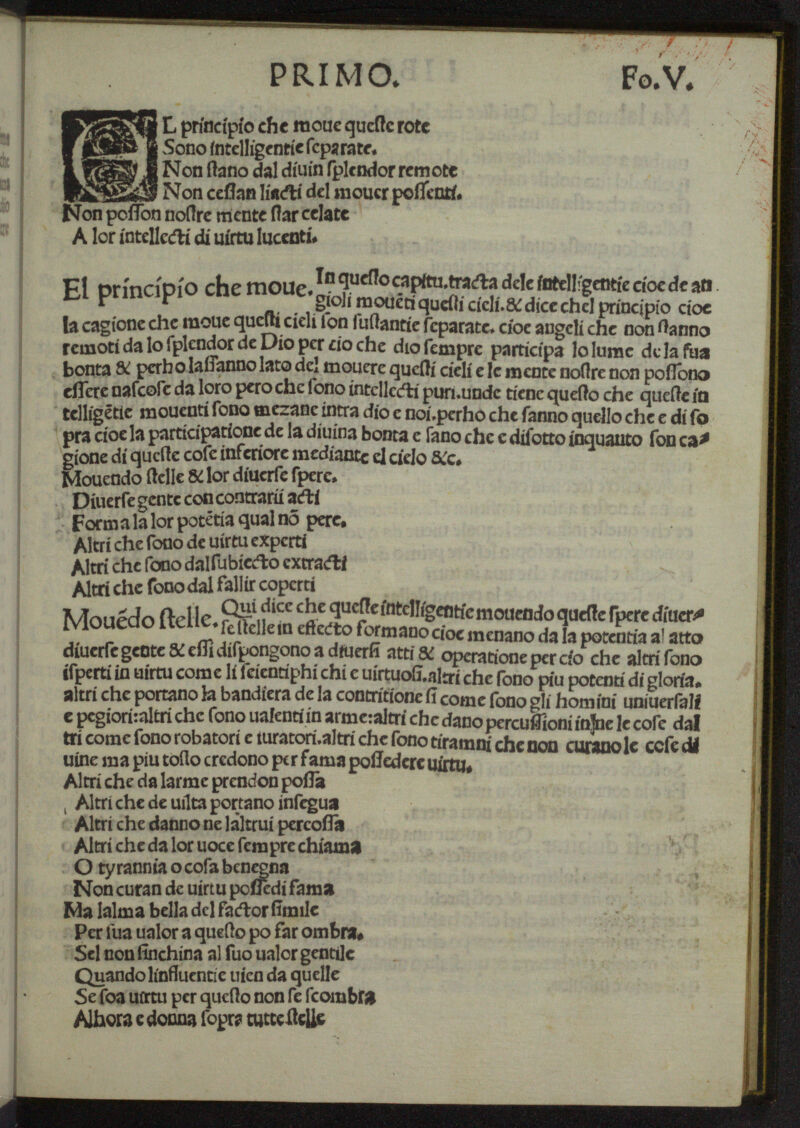 PRIMO. Fo.V.
EL principio che moue queſte rote
Sono intelligentie ſeparate.
Non ſtano dal diuin ſplendor remote
Non ceſſan li acti del mouer poſſenti.
Non poſſon noſtre mente ſtar celate
A lor intellecti di uirtu lucenti.
El principio che moue. In queſto capitu.tracta dele intelligentie cioe de an
gioli mouẽti queſti cieli.& dice chel principio cioe
la cagione che moue queſti cieli ſon ſuſtantie ſeparate. cioe angeli che non ſtanno
remoti da lo ſplendor de Dio per cio che dio ſempre participa lo lume de la ſua
bonta & perho laſſanno lato del mouere queſti cieli e le mente noſtre non poſſono
eſſere naſcoſe da loro pero che ſono intellecti puri.unde tiene queſto che queſte in
telligẽtie mouenti ſono mezane intra dio e noi.perho che ſanno quello che e di ſo
pra cioe la participatione de la diuina bonta e ſano che e diſotto inquanto ſon ca⸗
gione di queſte coſe inferiore mediante el cielo &c.
Mouendo ſtelle & lor diuerſe ſpere.
Diuerſe gente con contrarii acti
Forma la lor potẽtia qual nõ pere.
Altri che ſono de uirtu experti
Altri che ſono dal ſubiecto extracti
Altri che ſono dal fallir coperti
Mouẽdo ſtelle. Qui dice che queſte intelligentie mouendo queſte ſpere diuer⸗
ſe ſtelle in effecto formano cioe menano da la potentia al atto
diuerſe gente & eſſi diſpongono a diuerſi atti & operatione per cio che altri ſono
iſperti in uirtu come li ſcientiphi chi e uirtuoſi.altri che ſono piu potenti di gloria.
altri che portano la bandiera de la contritione ſi come ſono gli homini uniuerſali
e pegiori:altri che ſono ualenti in arme:altri che dano percuſſioni in ne le coſe dal
tri come ſono robatori e iuratori.altri che ſono tiramni che non curano le coſe di
uine ma piu toſto credono per fama poſſedere uirtu.
Altri che da larme prendon poſſa
Altri che de uilta portano inſegua
Altri che danno ne laltrui percoſſa
Altri che da lor uoce ſempre chiama
O tyrannia o coſa benegna
Non curan de uirtu poſſedi fama
Ma lalma bella del factor ſimile
Per ſua ualor a queſto po far ombra.
Sel non ſinchina al ſuo ualor gentile
Quando linfluentie uien da quelle
Se ſoa uirtu per queſto non ſe ſcombra
Alhora e donna ſopra tutte ſtelle